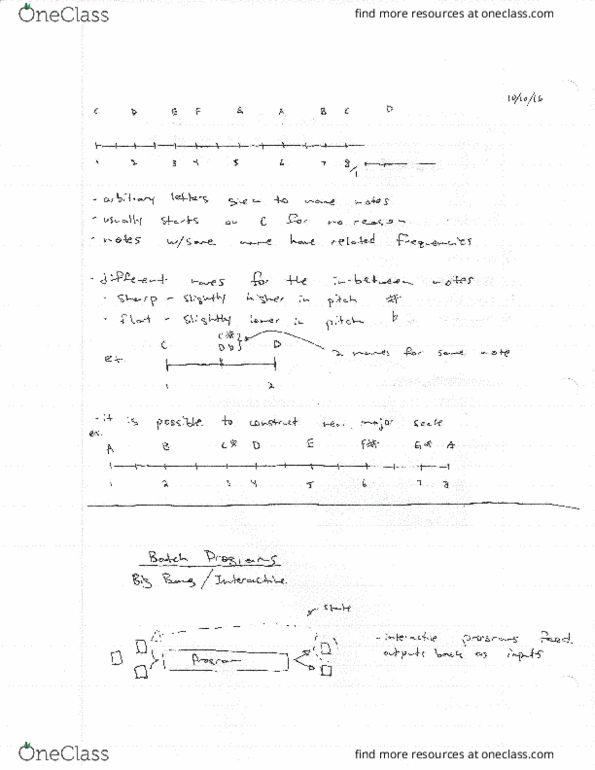 OneClass
find more resources at oneclass.com
10/10/16
C D E F G A B C D
1 2 3 4 5 6 7 8/1
- arbitrary letters given to name notes
- usually starts on C for no reason
- notes w/same name have related frequencies
- different names for the in-between notes
· sharp - slightly higher in pitch #
· flat - slightly lower in pitch b
C C# D
Db
2 names for same note
ex.
1 2
- it is possible to construct major scale
ex.
A B C# D E F# G# A
1 2 3 4 5 6 7 8
Batch Programs
Big Bang / Interactive
state
Program
- interactive programs feed
outputs back as inputs
OneClass
find more resources at oneclass.com